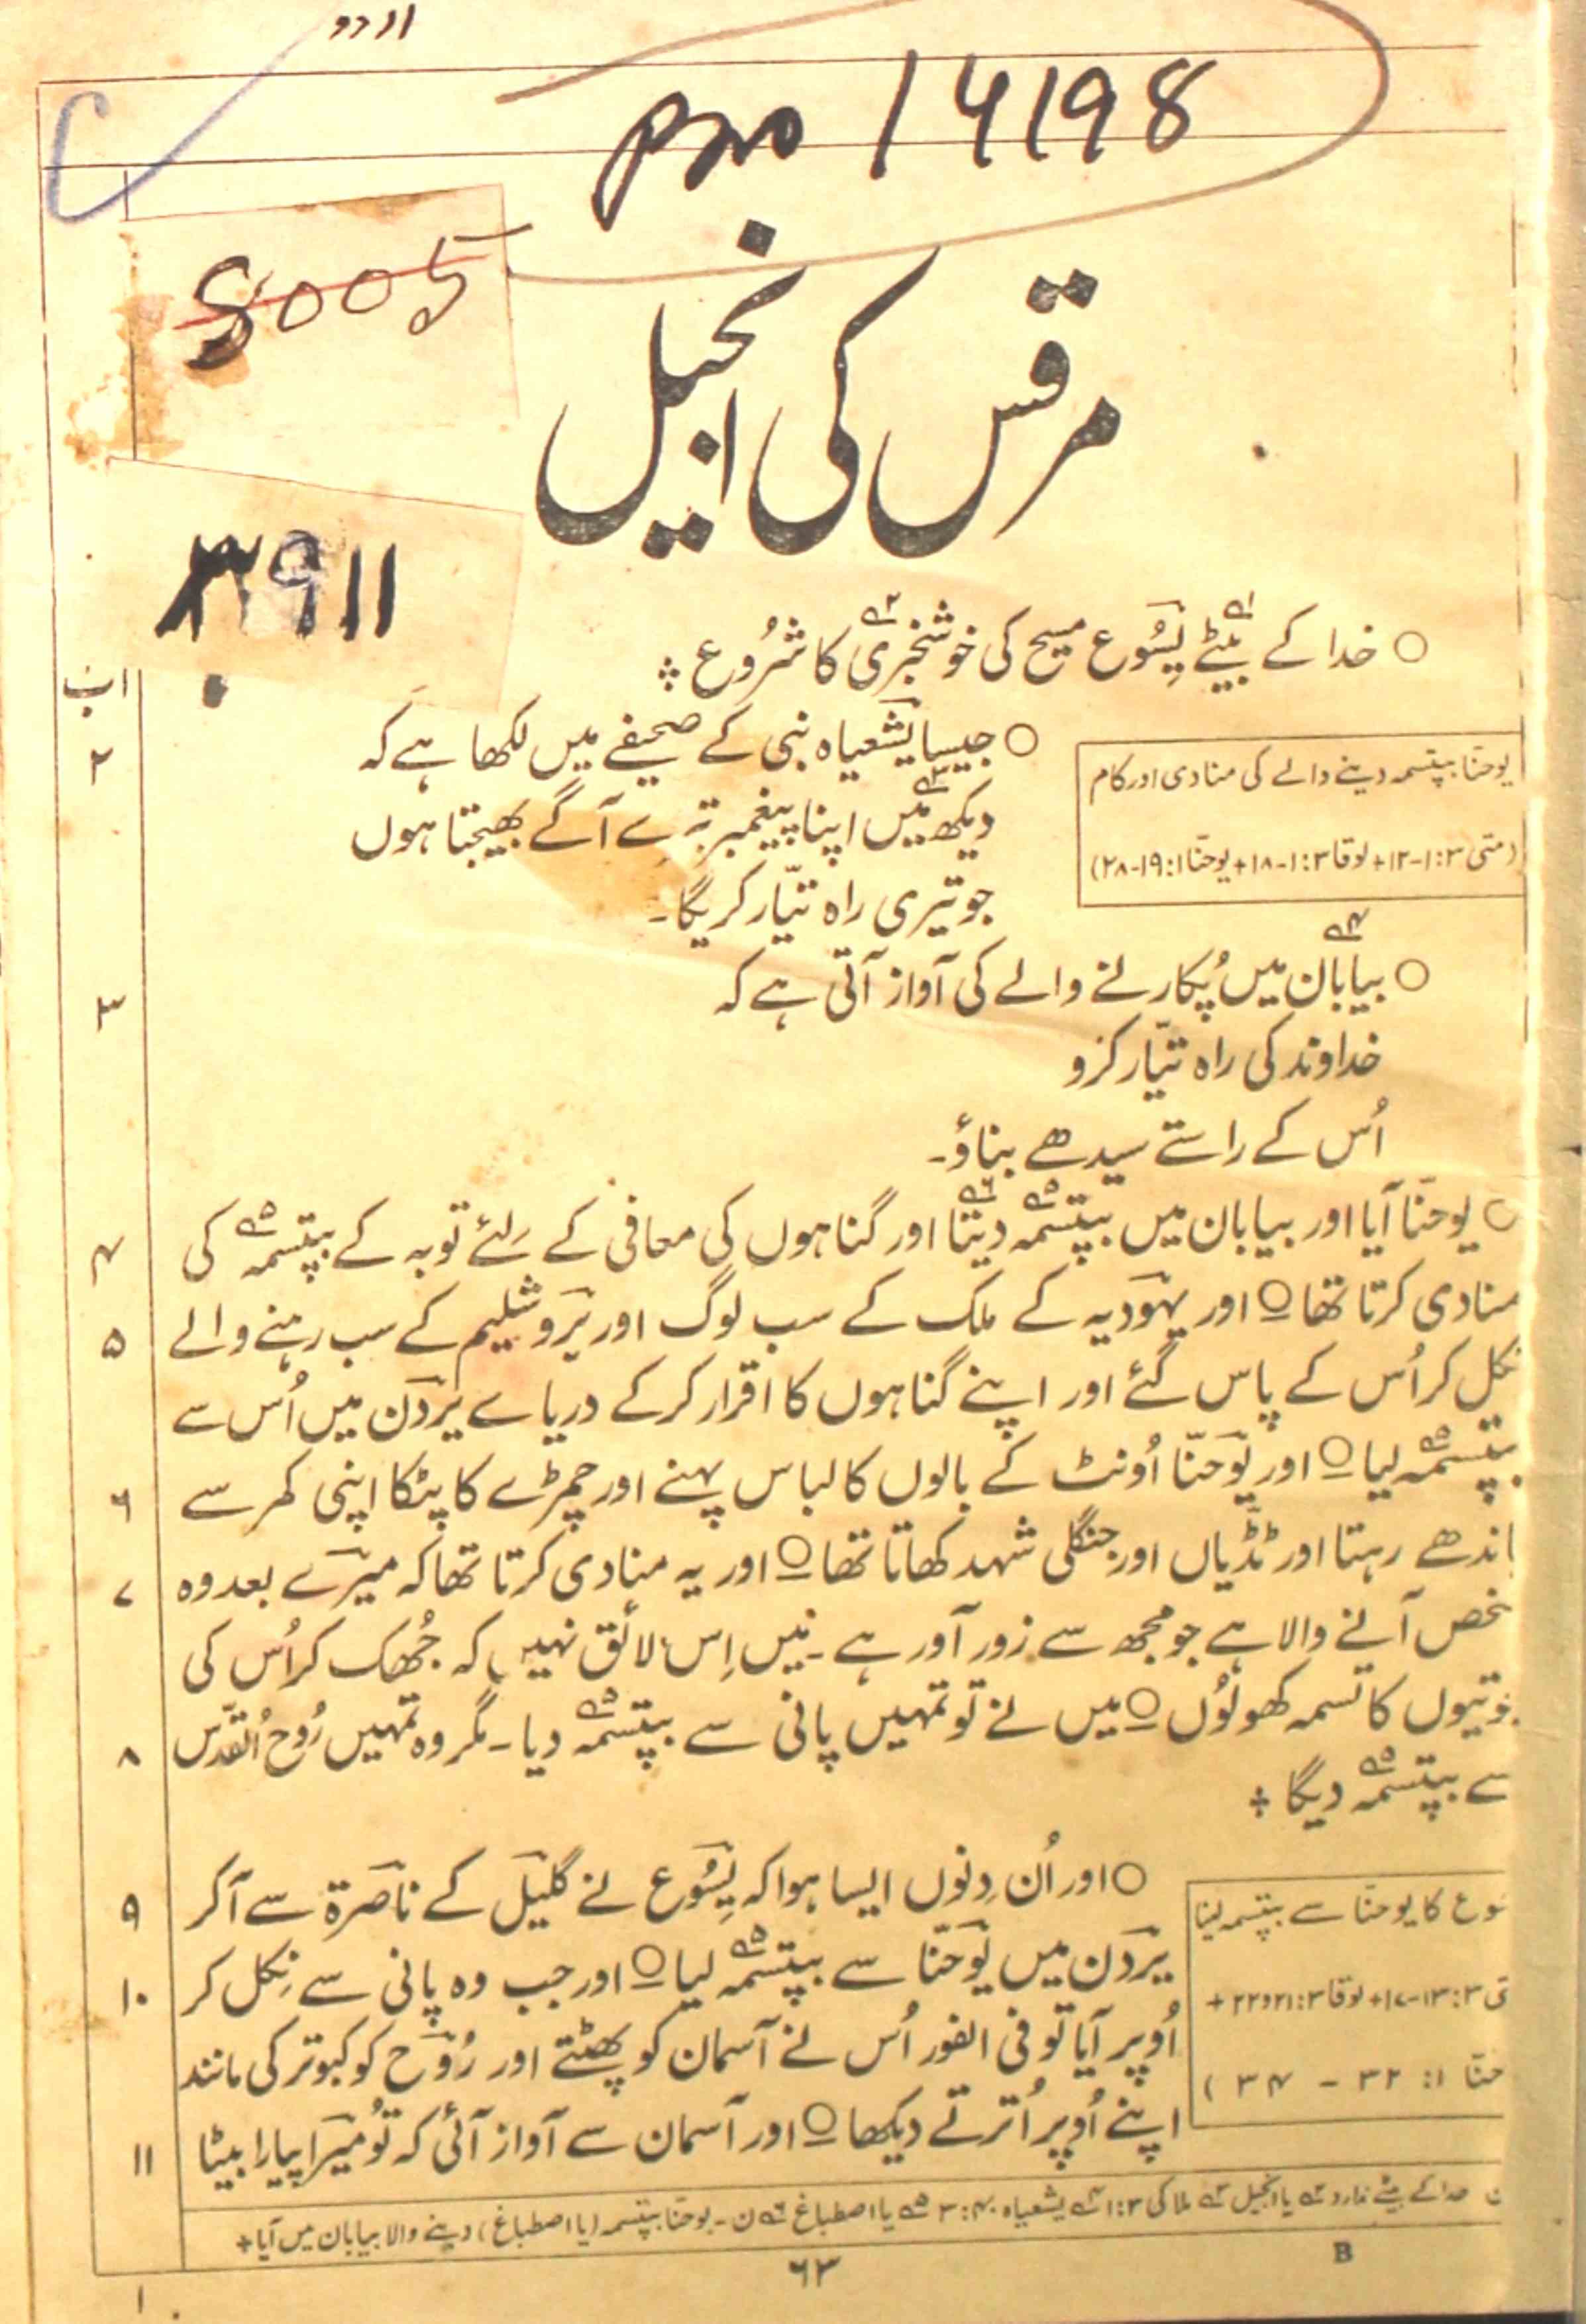 اردو
14198
8005
۳۹۱۱
مرقس کی انجیل
○ خدا کے بیٹے یسُوع مسیح کی خوشخبری کا شرُوع ÷
۱ب
یوحنّا بپتسمہ دینے والے کی منادی اور کام
(متی ۳: ۱-۱۲ + لوقا ۳: ۱-۱۸ + یوحنّا ۱: ۱۹-۲۸)
○ جیسا یشعیاہ نبی کے صحیفے میں لکھا ہے کہ ۲
دیکھ مَیں اپنا پیغمبر تیرے آگے بھیجتا ہوں
جو تیری راہ تیّار کریگا۔
○ بیابان میں پُکارنے والے کی آواز آتی ہے کہ ۳
خداوند کی راہ تیّار کرو
اُس کے راستے سیدھے بناؤ۔
○ یوحنّا آیا اور بیابان میں بپتسمہ۵ دیتا۶ اور گناہوں کی معافی کے لِئے توبہ کے بپتسمہ۵ کی ۴
منادی کرتا تھا ○ اور یہودیہ کے ملک کے سب لوگ اور یروشلیم کے سب رہنے والے ۵
نکل کر اُس کے پاس گئے اور اپنے گناہوں کا اقرار کرکے دریاے یردن میں اُس سے
بپتسمہ۵ لیا ○ اور یوحنّا اُونٹ کے بالوں کا لباس پہنے اور چمڑے کا پٹکا اپنی کمر سے ۶
باندھے رہتا اور ٹڈّیاں اور جنگلی شہد کھاتا تھا ○ اور یہ منادی کرتا تھا کہ میرے بعد وہ ۷
شخص آنے والا ہے جو مجھ سے زور آور ہے۔ مَیں اِس لائق نہیں کہ جُھک کر اُس کی
جوتیوں کا تسمہ کھولُوں ○ میں نے تو تمہیں پانی سے بپتسمہ۵ دیا۔ مگر وہ تمہیں رُوح اُلقدّس ۸
سے بپتسمہ۵ دیگا ÷
یسوع کا یوحنّا سے بپتسمہ لینا
متی ۳: ۱۳-۱۷ + لوقا ۳: ۲۱و۲۲ +
یوحنّا ۱: ۳۲ - ۳۴)
○ اور اُن دِنوں ایسا ہوا کہ یسُوع نے گلیل کے ناصرۃ سے آکر ۹
یردن میں یوحنّا سے بپتسمہ۵ لیا ○ اور جب وہ پانی سے نِکل کر ۱۰
اُوپر آیا تو فی الفور اُس نے آسمان کو پھٹتے اور رُوح کو کبوتر کی مانند
اپنے اُوپر اُترتے دیکھا ○ اور آسمان سے آواز آئی کہ تُو میرا پیارا بیٹا ۱۱
ن خدا کے بیٹے ندارد ۲ یا انجیل ۳ ملاکی ۳: ۱ ۴ یشعیاہ ۴۰: ۳ ۵ یا اصطباغ ۶ ن۔ یوحنّا بپتسمہ (یا اصطباغ) دینے والا بیابان میں آیا +
۶۳
B
۱